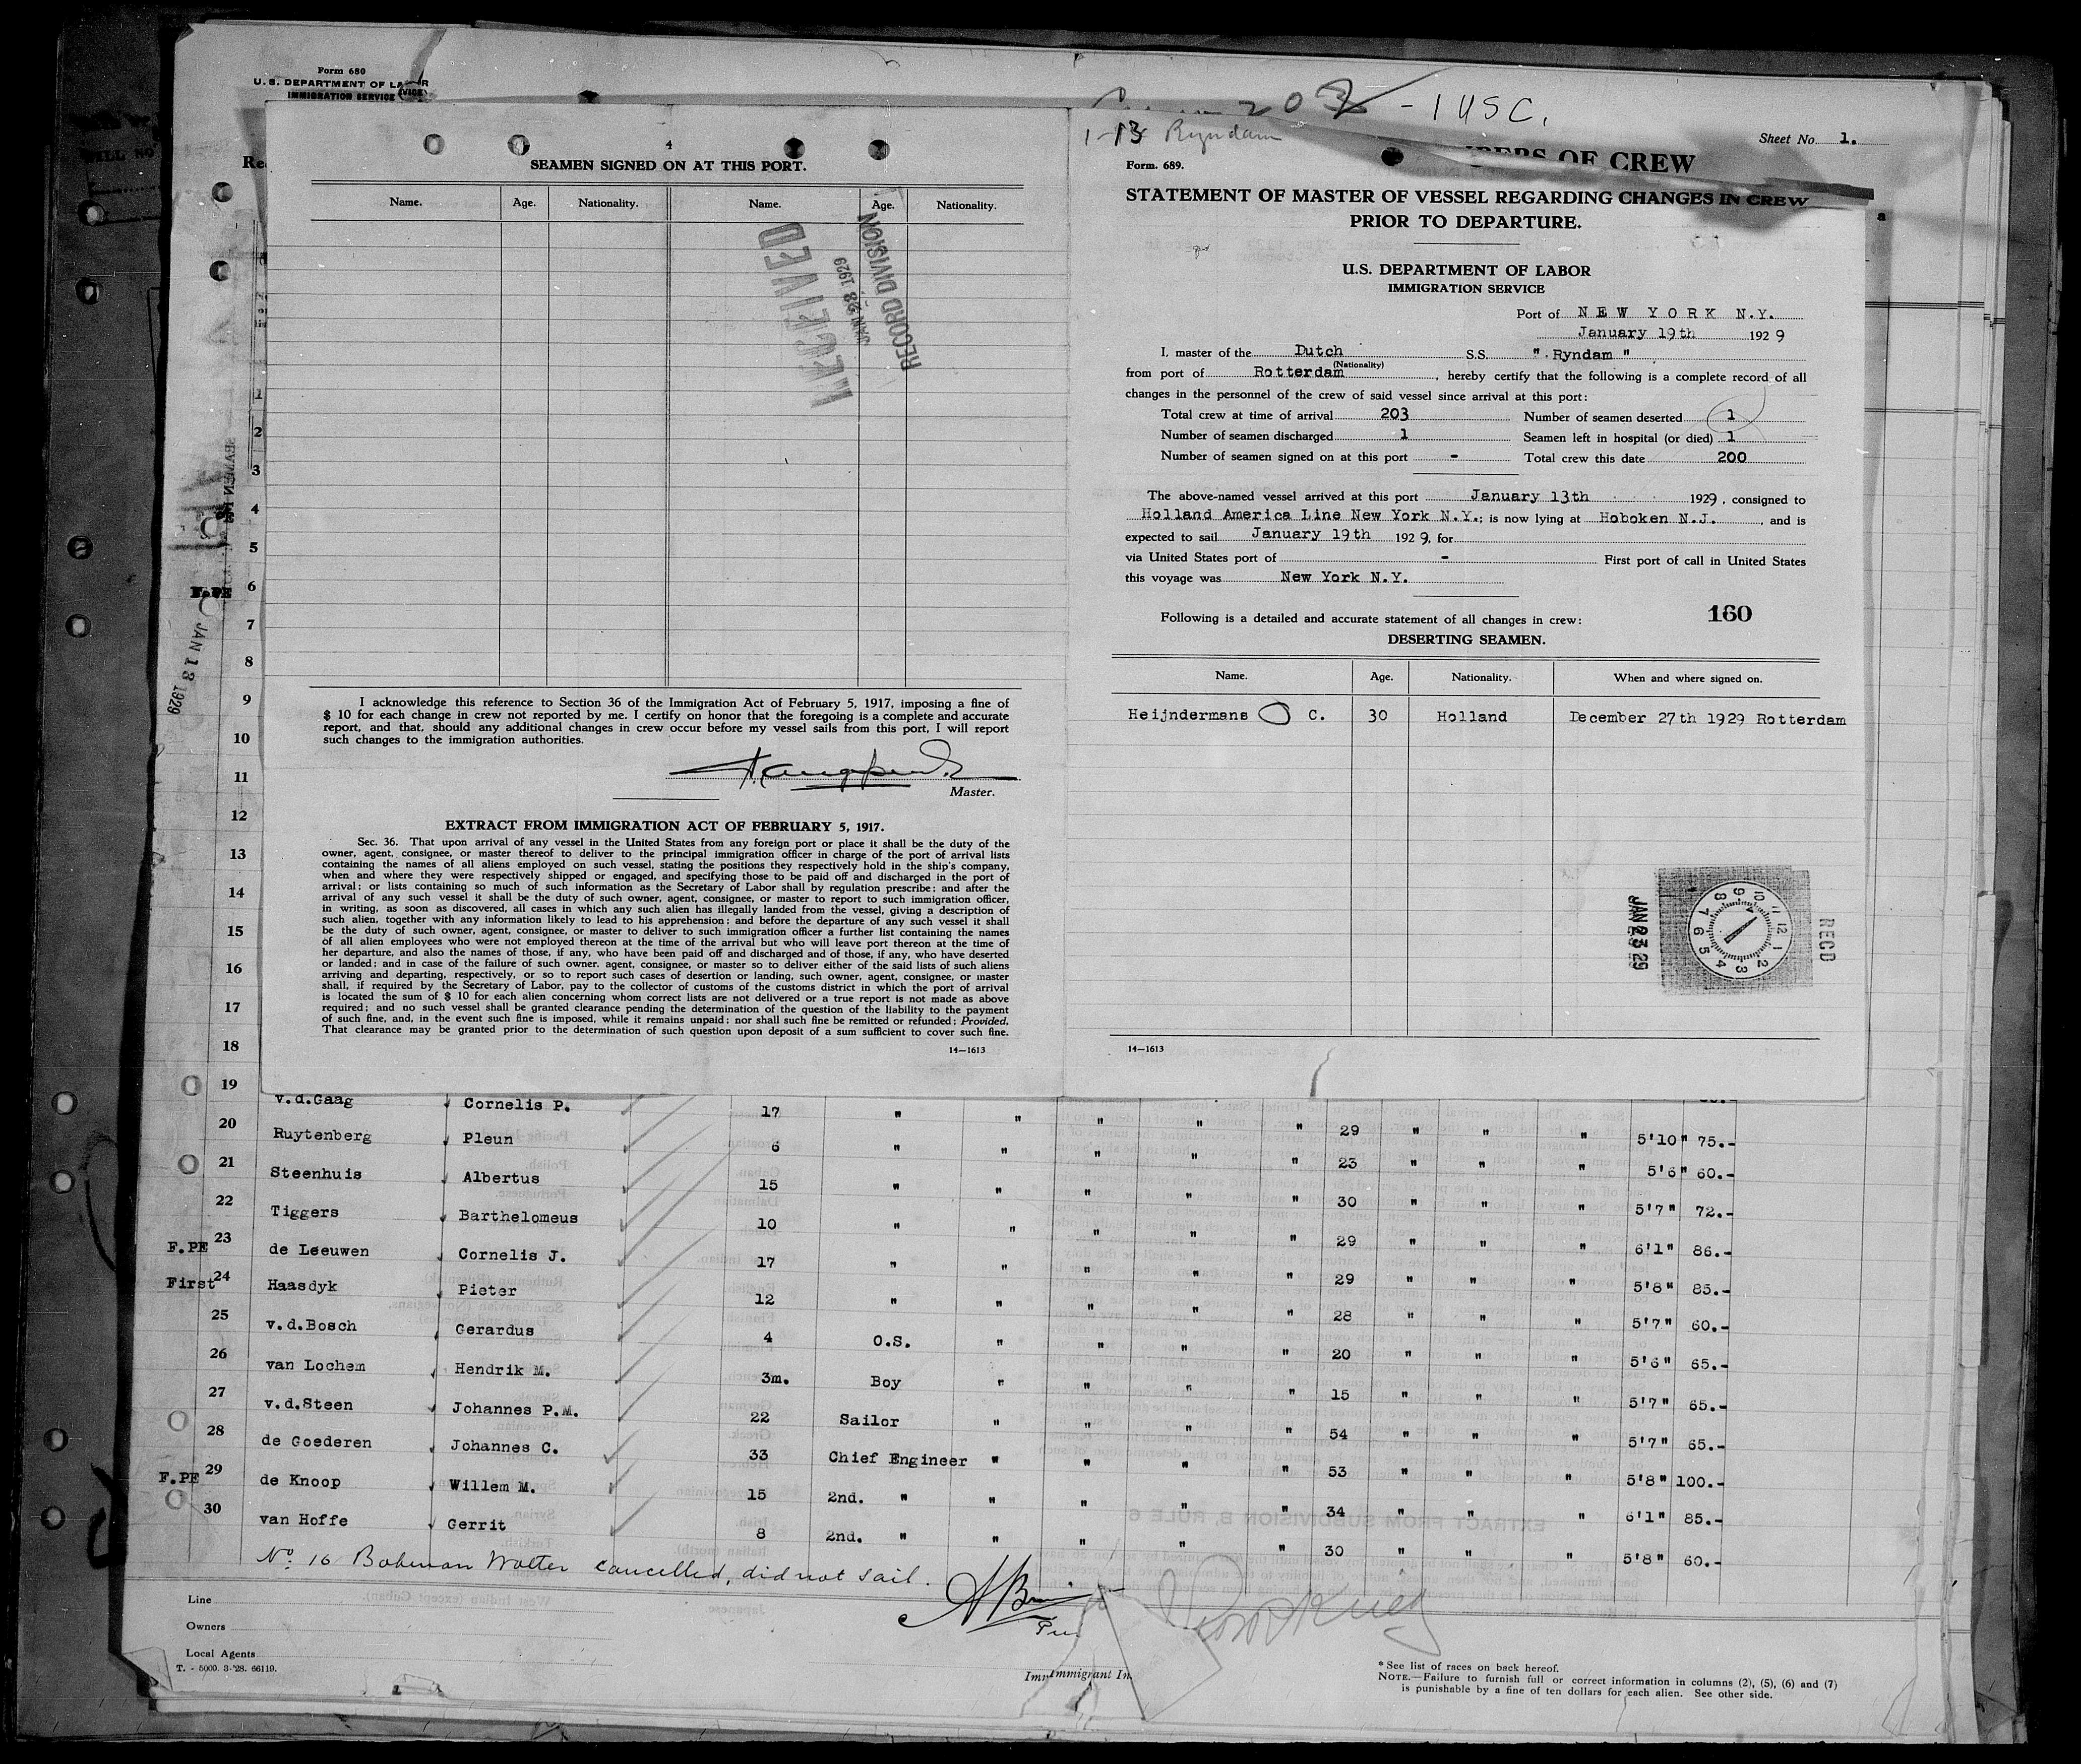 Form 680
U. S. DEPARTMENT OF LABOR
IMMIGRATION SERVICE
203 - 1 USC.
1-13 Ryndam
Sheet No. 1.
OF CREW
4
SEAMEN SIGNED ON AT THIS PORT.
Name. Age. Nationality. Name. Age. Nationality.
RECEIVED
JAN 28 1929
RECORD DIVISION
I acknowledge this reference to Section 36 of the Immigration Act of February 5, 1917, imposing a fine of
$ 10 for each change in crew not reported by me. I certify on honor that the foregoing is a complete and accurate
report, and that, should any additional changes in crew occur before my vessel sails from this port, I will report
such changes to the immigration authorities.
Master.
EXTRACT FROM IMMIGRATION ACT OF FEBRUARY 5, 1917.
Sec. 36. That upon arrival of any vessel in the United States from any foreign port or place it shall be the duty of the
owner, agent, consignee, or master thereof to deliver to the principal immigration officer in charge of the port of arrival lists
containing the names of all aliens employed on such vessel, stating the positions they respectively hold in the ship's company,
when and where they were respectively shipped or engaged, and specifying those to be paid off and discharged in the port of
arrival; or lists containing so much of such information as the Secretary of Labor shall by regulation prescribe; and after the
arrival of any such vessel it shall be the duty of such owner, agent, consignee, or master to report to such immigration officer,
in writing, as soon as discovered, all cases in which any such alien has illegally landed from the vessel, giving a description of
such alien, together with any information likely to lead to his apprehension; and before the departure of any such vessel it shall
be the duty of such owner, agent, consignee, or master to deliver to such immigration officer a further list containing the names
of all alien employees who were not employed thereon at the time of the arrival but who will leave port thereon at the time of
her departure, and also the names of those, if any, who have been paid off and discharged and of those, if any, who have deserted
or landed; and in case of the failure of such owner. agent, consignee, or master so to deliver either of the said lists of such aliens
arriving and departing, respectively, or so to report such cases of desertion or landing, such owner, agent, consignee, or master
shall, if required by the Secretary of Labor, pay to the collector of customs of the customs district in which the port of arrival
is located the sum of $ 10 for each alien concerning whom correct lists are not delivered or a true report is not made as above
required; and no such vessel shall be granted clearance pending the determination of the question of the liability to the payment
of such fine, and, in the event such fine is imposed, while it remains unpaid; nor shall such fine be remitted or refunded; Provided,
That clearance may be granted prior to the determination of such question upon deposit of a sum sufficient to cover such fine.
14—1613
Form. 689.
STATEMENT OF MASTER OF VESSEL REGARDING CHANGES IN CREW
PRIOR TO DEPARTURE.
U.S. DEPARTMENT OF LABOR
IMMIGRATION SERVICE
Port of NEW YORK N.Y.
January 19th 1929
I, master of the Dutch S.S. " Ryndam "
(Nationality)
from port of Rotterdam, hereby certify that the following is a complete record of all
changes in the personnel of the crew of said vessel since arrival at this port:
Total crew at time of arrival 203 Number of seamen deserted 1
Number of seamen discharged 1 Seamen left in hospital (or died) 1
Number of seamen signed on at this port - Total crew this date 200
The above-named vessel arrived at this port January 13th 1929, consigned to
Holland America Line New York N.Y.; is now lying at Hoboken N.J., and is
expected to sail January 19th 1929, for
via United States port of - First port of call in United States
this voyage was New York N.Y.
160
Following is a detailed and accurate statement of all changes in crew:
DESERTING SEAMEN.
Name. Age. Nationality. When and where signed on.
Heijndermans C. 30 Holland December 27th 1929 Rotterdam
RECD
JAN 23 29
14—1613
JAN 13 1929
F.PE
1
2
3
4
5
6
7
8
9
10
11
12
13
14
15
16
17
18
19 v.d.Gaag Cornelis P. 17 " " " " " 29 " " " 5'10" 75.-
20 Ruytenberg Pleun 6 " " " " " 23 " " " 5'6" 60.-
21 Steenhuis Albertus 15 " " " " " 30 " " " 5'7" 72.-
22 Tiggers Barthelomeus 10 " " " " " 29 " " " 6'1" 86.-
F.PE 23 de Leeuwen Cornelis J. 17 " " " " " 29 " " " 5'8" 85.-
First 24 Haasdyk Pieter 12 " " " " " 28 " " " 5'7" 60.-
25 v.d.Bosch Gerardus 4 O.S. " " " " 20 " " " 5'6" 65.-
26 van Lochem Hendrik M. 3m. Boy " " " " 15 " " " 5'7" 65.-
27 v.d.Steen Johannes P.M. 22 Sailor " " " " 54 " " " 5'7" 65.-
28 de Goederen Johannes C. 33 Chief Engineer " " " " 53 " " " 5'8" 100.-
F.PE 29 de Knoop Willem M. 15 2nd. " " " " " 34 " " " 6'1" 85.-
30 van Hoffe Gerrit 8 2nd. " " " " " 30 " " " 5'8" 60.-
No. 16 Bohman Wolter cancelled, did not sail.
Line
Owners
Local Agents
T. - 5000. 3-'28. 66119.
Immigrant In
* See list of races on back hereof.
NOTE.—Failure to furnish full or correct information in columns (2), (5), (6) and (7)
is punishable by a fine of ten dollars for each alien. See other side.